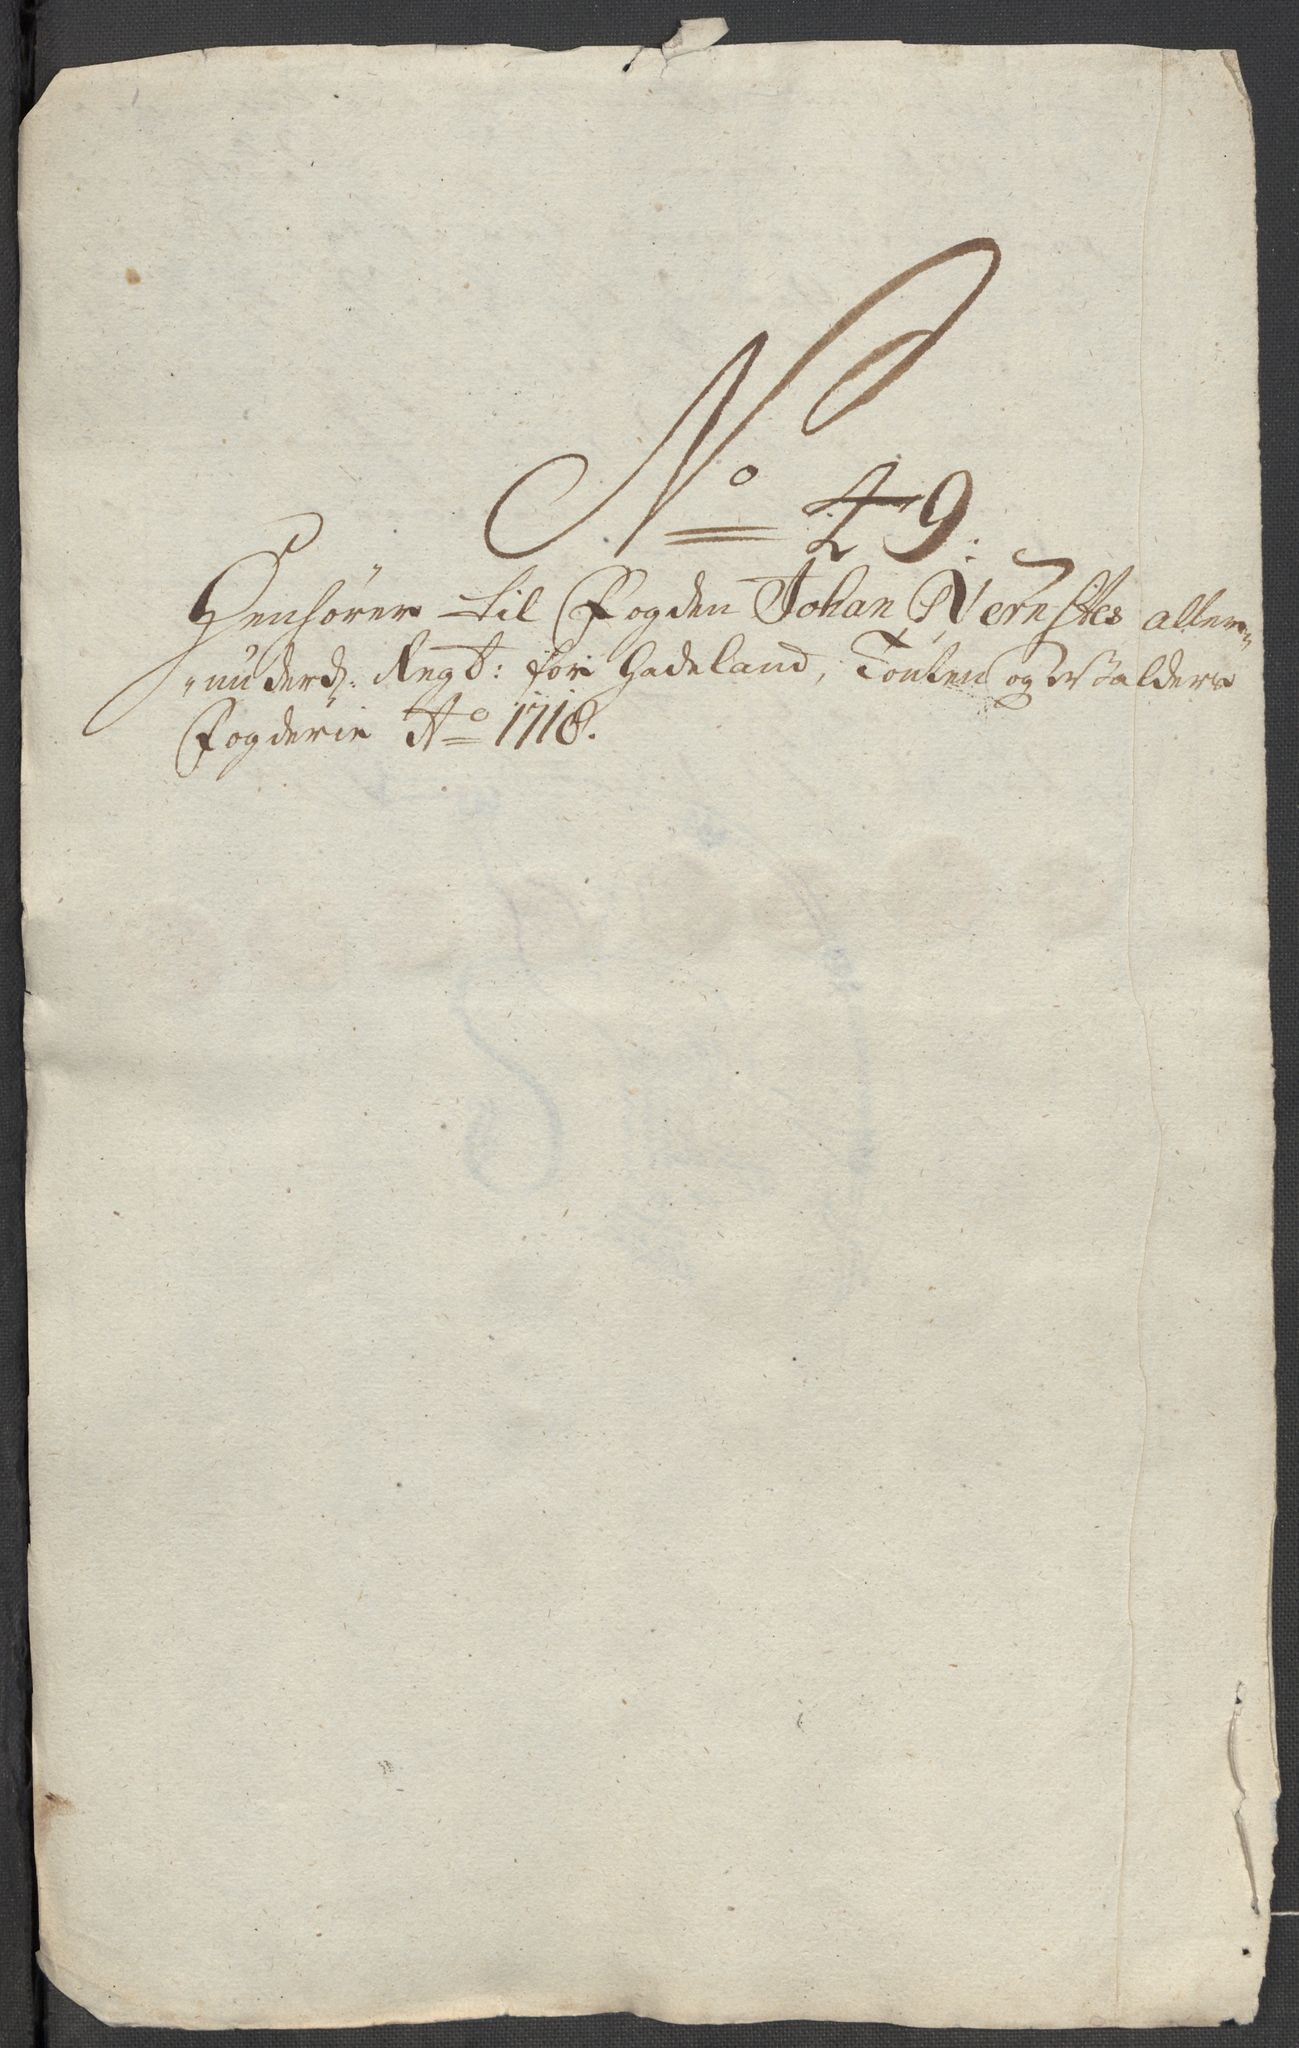 No 49:
Henhörer til Fogden Johan Nernstes aller=
=underd: Regt: for Hadeland, Touten og Walders
Fogderie Ao 1718.